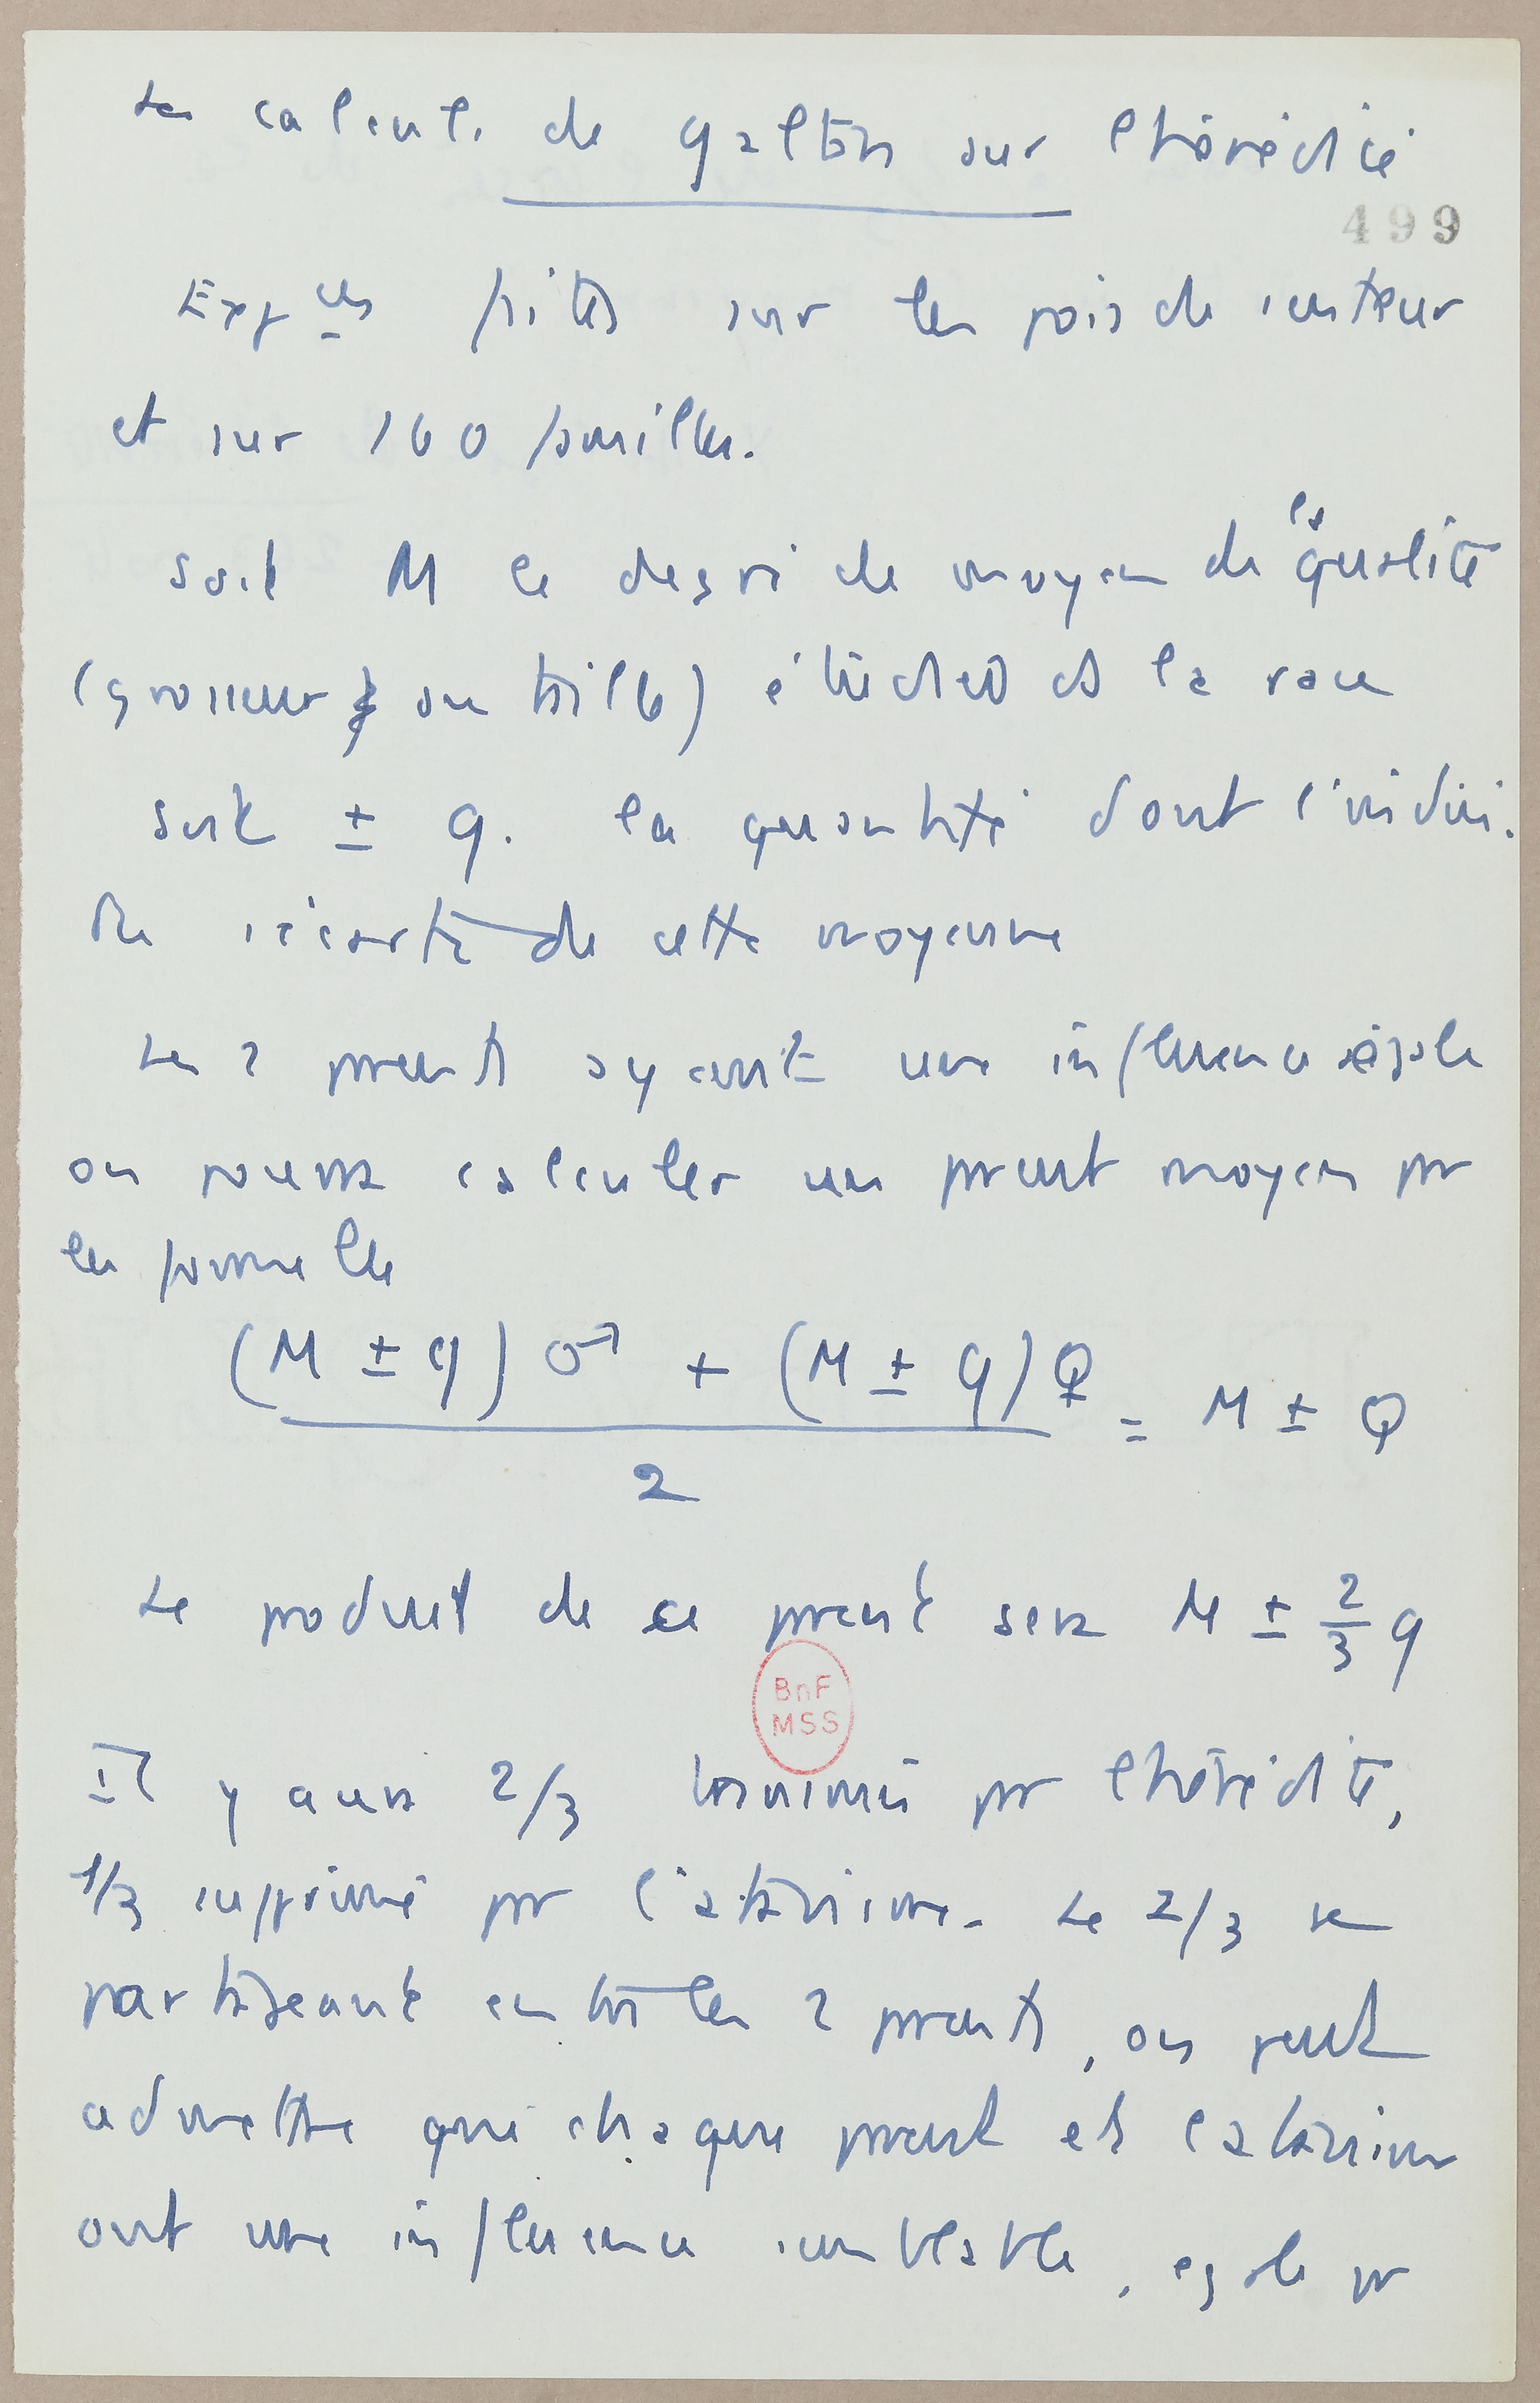 Les calculs de Galton sur l'hérédité
499
Expces faites sur les pois de senteur
et sur 160 familles.
Soit M le degré de moyen de la qualité
(grosseur ou taille) étudiée ds la race
soit ± q. la quantité dont l'indivi.
du s'écarte de cette moyenne
Les 2 parents ayant une influence égale
on pourra calculer un parent moyen par
la formule
(M ± q) ♂ + (M ± q) ♀ = M ± Q
2
Le produit de ce parent sera M ± 2/3 q
BnF
MSS
Il y aura 2/3 transmis par l'hérédité,
1/3 supprimé par l'atavisme. Le 2/3 se
partageant entre les 2 parents, on peut
admettre que chaque parent et l'atavisme
ont une influence semblable, égale par